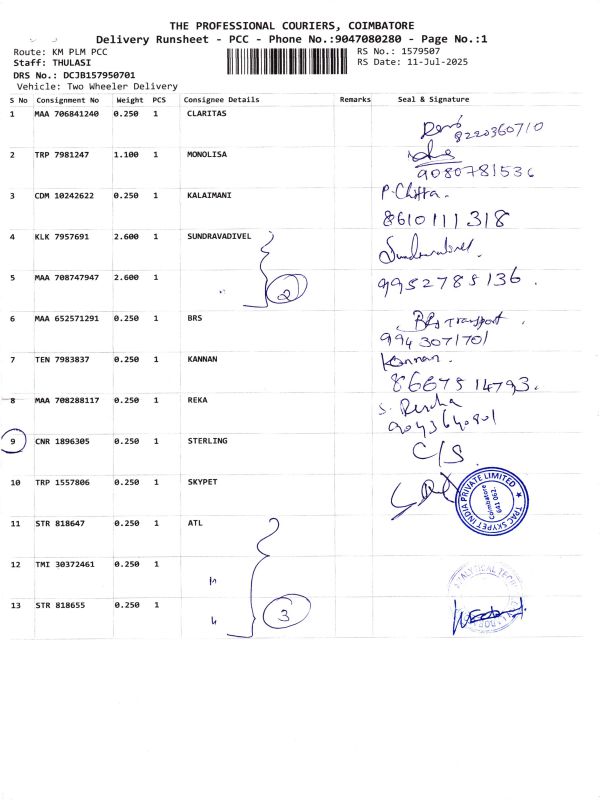 THE PROFESSIONAL COURIERS, COIMBATORE
Delivery Runsheet - PCC - Phone No.:9047080280 - Page No.:1
Route: KM PLM PCC RS No.: 1579507
Staff: THULASI RS Date: 11-Jul-2025
DRS No.: DCJB157950701
Vehicle: Two Wheeler Delivery
S No Consignment No Weight PCS Consignee Details Remarks Seal & Signature
1 MAA 706841240 0.250 1 CLARITAS
8220360710
2 TRP 7981247 1.100 1 MONOLISA
9080781536
3 CDM 10242622 0.250 1 KALAIMANI P. Chitra.
8610111318
4 KLK 7957691 2.600 1 SUNDRAVADIVEL
5 MAA 708747947 2.600 1 " 2 9952785136.
6 MAA 652571291 0.250 1 BRS BRS Transport.
9943071701
7 TEN 7983837 0.250 1 KANNAN Kannan.
8667514793.
8 MAA 708288117 0.250 1 REKA S. Rekha
9043640801
9 CNR 1896305 0.250 1 STERLING C/S
10 TRP 1557806 0.250 1 SKYPET
TPAC SKYPET INDIA PRIVATE LIMITED
Coimbatore
641 062.
11 STR 818647 0.250 1 ATL
12 TMI 30372461 0.250 1 "
13 STR 818655 0.250 1 " 3